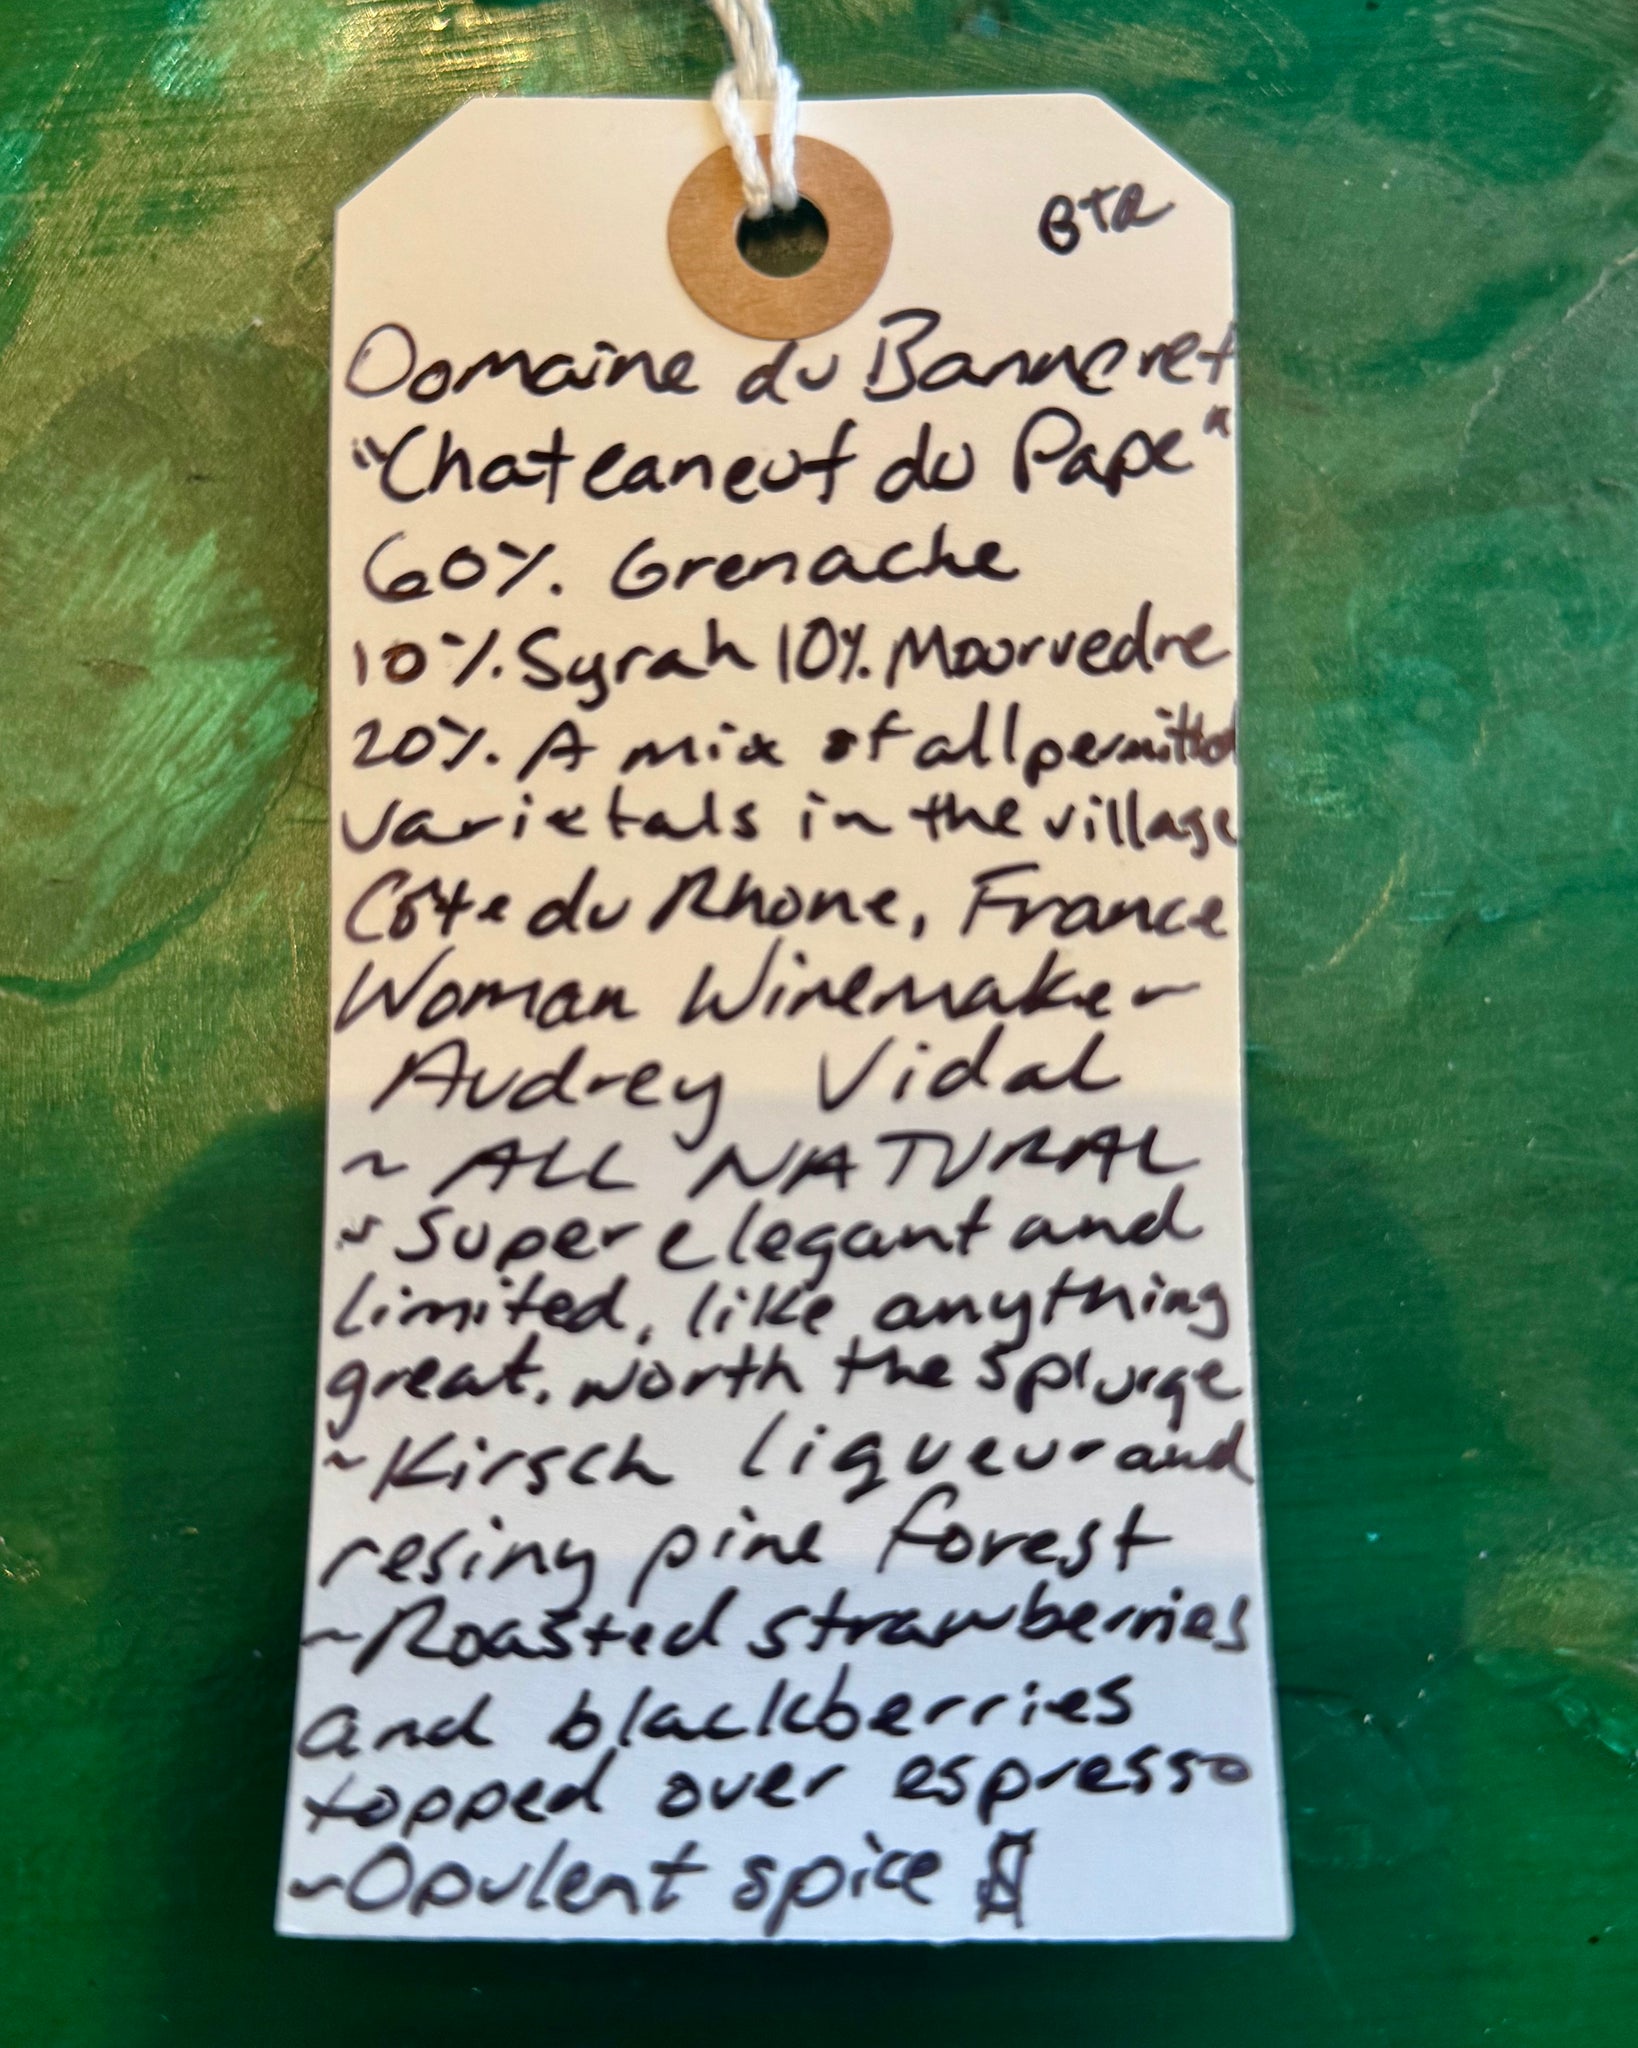 BTR
Domaine du Banneret
"Chateaneuf du Pape"
60% Grenache
10% Syrah 10% Mourvedre
20% A mix of all permitted
varietals in the village
Côte du Rhone, France
Woman Winemaker
Audrey Vidal
~ ALL NATURAL
~ Super elegant and
limited, like anything
great. Worth the splurge
~ Kirsch liqueur and
resiny pine forest
~ Roasted strawberries
and blackberries
topped over espresso
~ Opulent spice